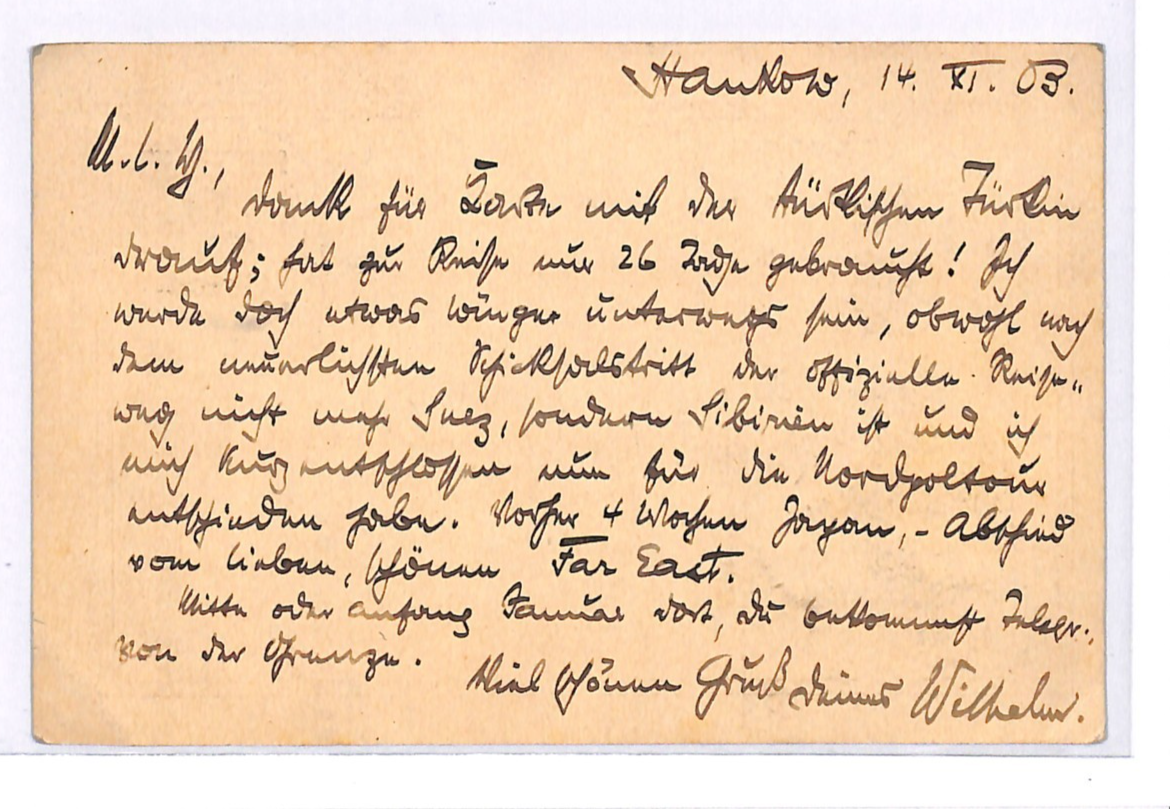 Hankow, 14. XI. 03.
M. l. W.,
dank für Karte mit der türkischen Türkin
drauf; hat zur Reise nur 26 Tage gebraucht! Ich
werde doch etwas länger unterwegs sein, obwohl nach
dem neuerlichsten Schicksalstritt der offizielle Reise-
weg nicht mehr Suez, sondern Sibirien ist und ich
mich kurz entschlossen nun für die Nordpoltour
entschieden habe. Vorher 4 Wochen Japan, - Abschied
vom lieben, schönen Far East.
Mitte oder anfang Januar dort, du bekommst Telegr.
von der Grenze.
Viel schönen Gruß deines Wilhelm.